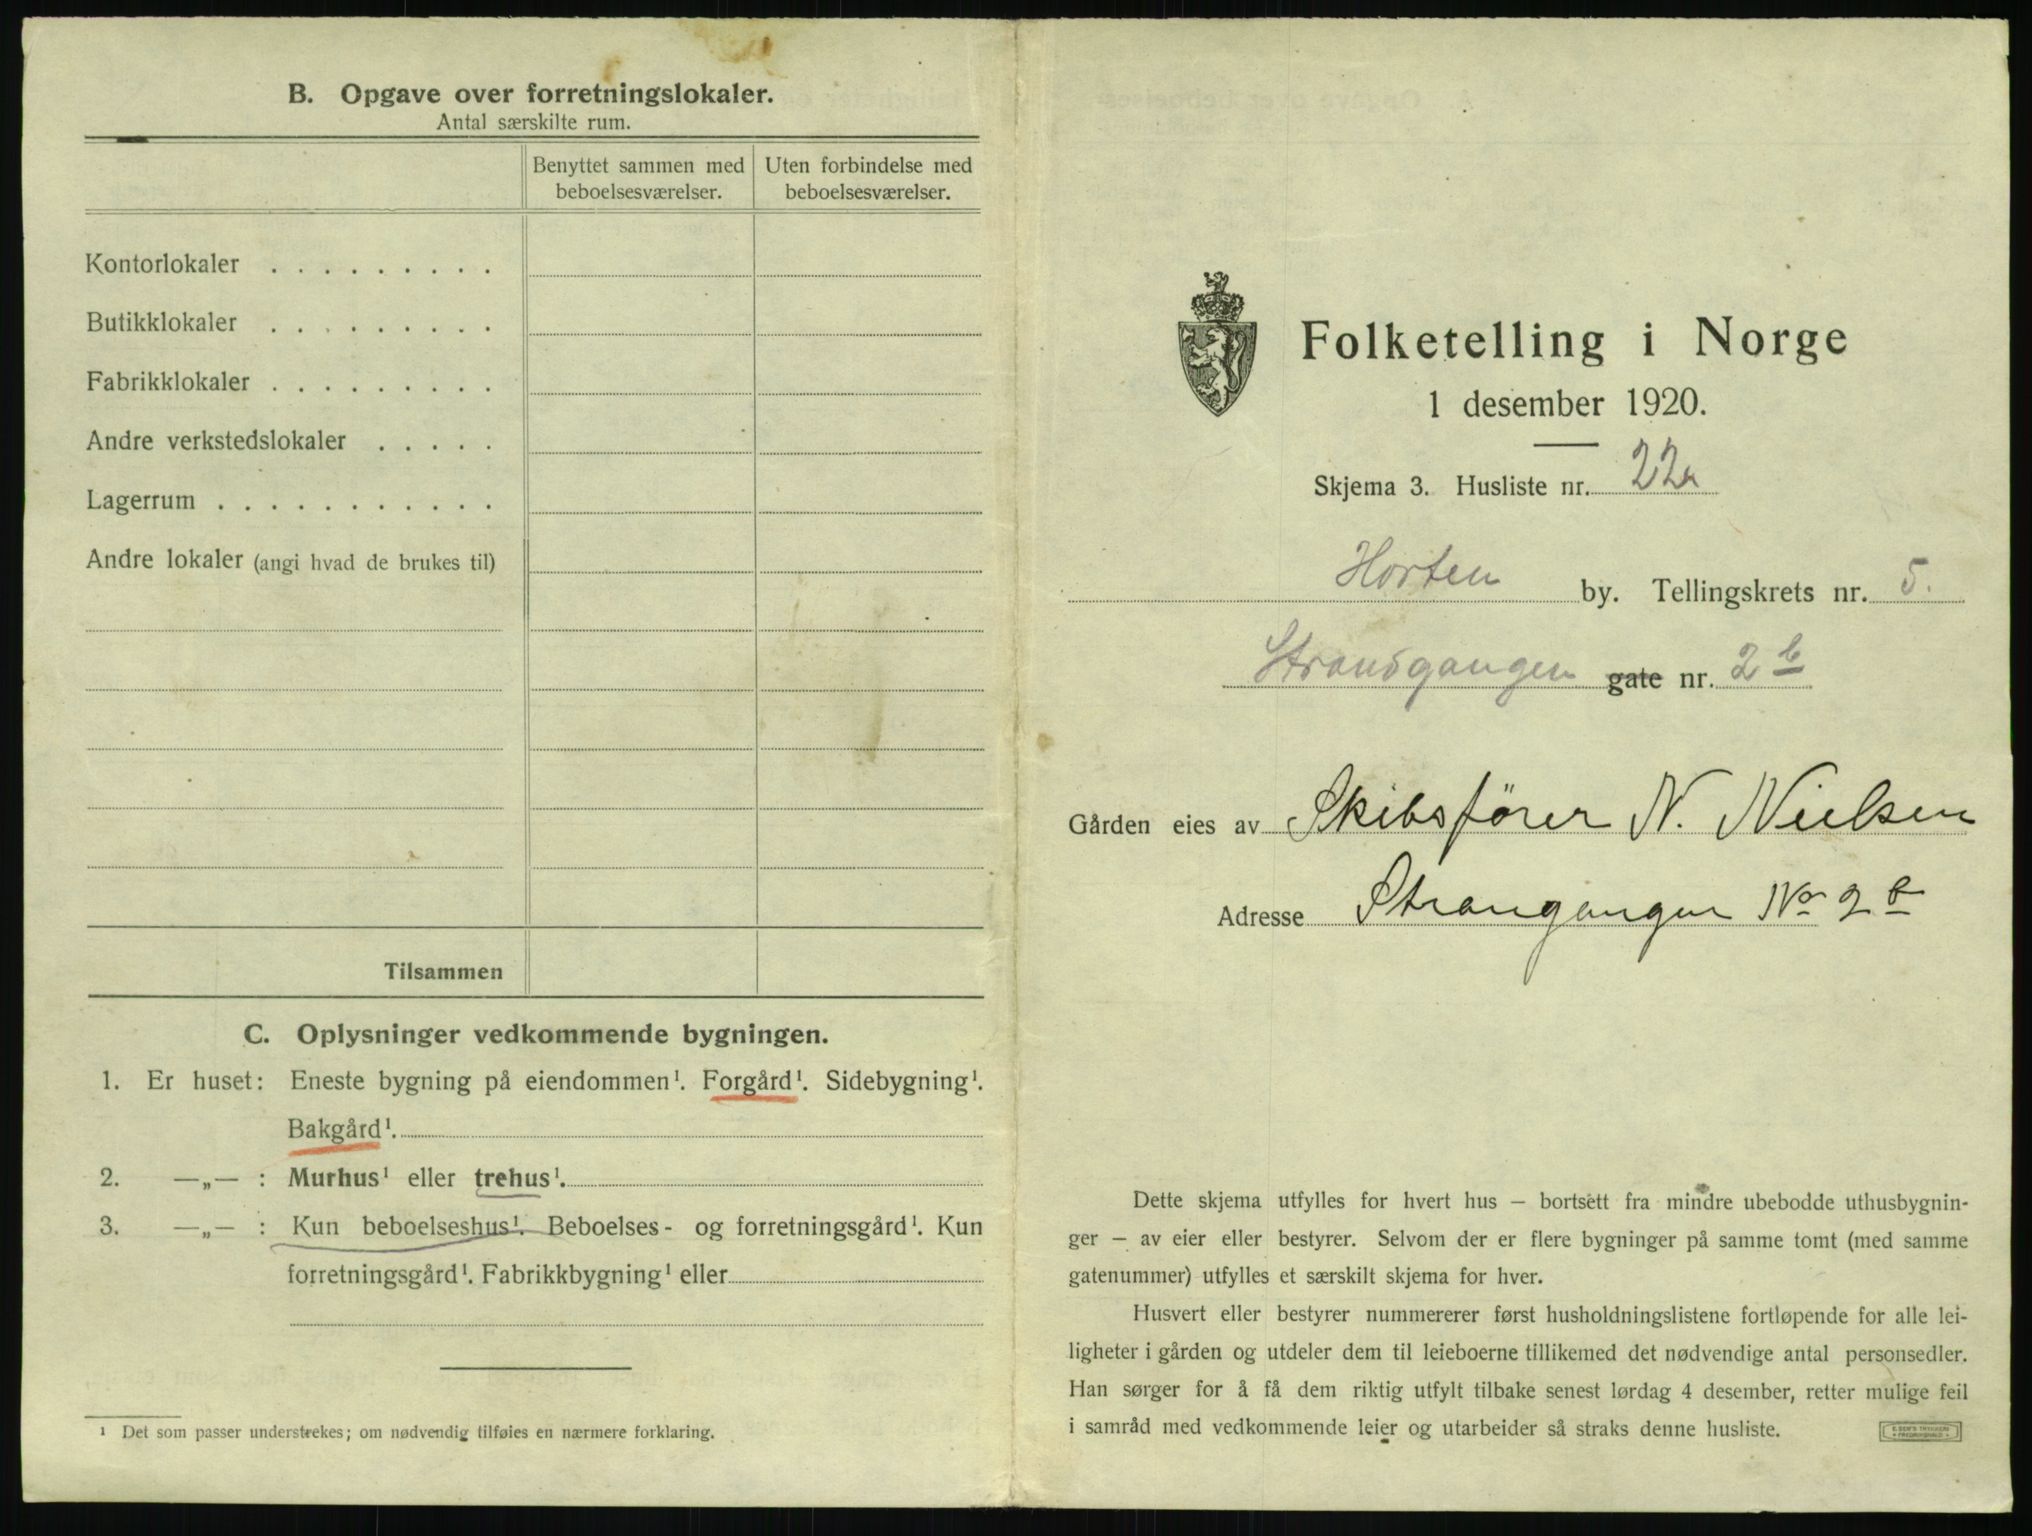 B. Opgave over forretningslokaler.
Antal særskilte rum.
Benyttet sammen med beboelsesværelser.
Uten forbindelse med beboelsesværelser.
Kontorlokaler . . . . . . . . .
Butikklokaler . . . . . . . . .
Fabrikklokaler . . . . . . . . .
Andre verkstedslokaler . . . . .
Lagerrum . . . . . . . . . . .
Andre lokaler (angi hvad de brukes til)
Tilsammen
C. Oplysninger vedkommende bygningen.
1. Er huset: Eneste bygning på eiendommen¹. Forgård¹. Sidebygning¹.
Bakgård¹.
2. —„— : Murhus¹ eller trehus¹.
3. —„— : Kun beboelseshus¹. Beboelses- og forretningsgård¹. Kun
forretningsgård¹. Fabrikkbygning¹ eller
¹ Det som passer understrekes; om nødvendig tilføies en nærmere forklaring.
Folketelling i Norge
1 desember 1920.
Skjema 3. Husliste nr. 22a
Horten by. Tellingskrets nr. 5.
Strandgangen gate nr. 2b
Gården eies av Skibsfører N. Nielsen
Adresse Strangangen No 2b
Dette skjema utfylles for hvert hus – bortsett fra mindre ubebodde uthusbygnin-
ger – av eier eller bestyrer. Selvom der er flere bygninger på samme tomt (med samme
gatenummer) utfylles et særskilt skjema for hver.
Husvert eller bestyrer nummererer først husholdningslistene fortløpende for alle lei-
ligheter i gården og utdeler dem til leieboerne tillikemed det nødvendige antal personsedler.
Han sørger for å få dem riktig utfylt tilbake senest lørdag 4 desember, retter mulige feil
i samråd med vedkommende leier og utarbeider så straks denne husliste.